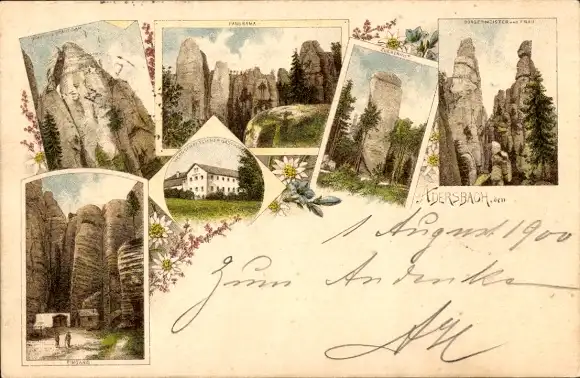 PANORAMA
BÜRGERMEISTER und FRAU
EINGANG
ADERSBACH, den
1 August 1900
Zum Andenken
AH